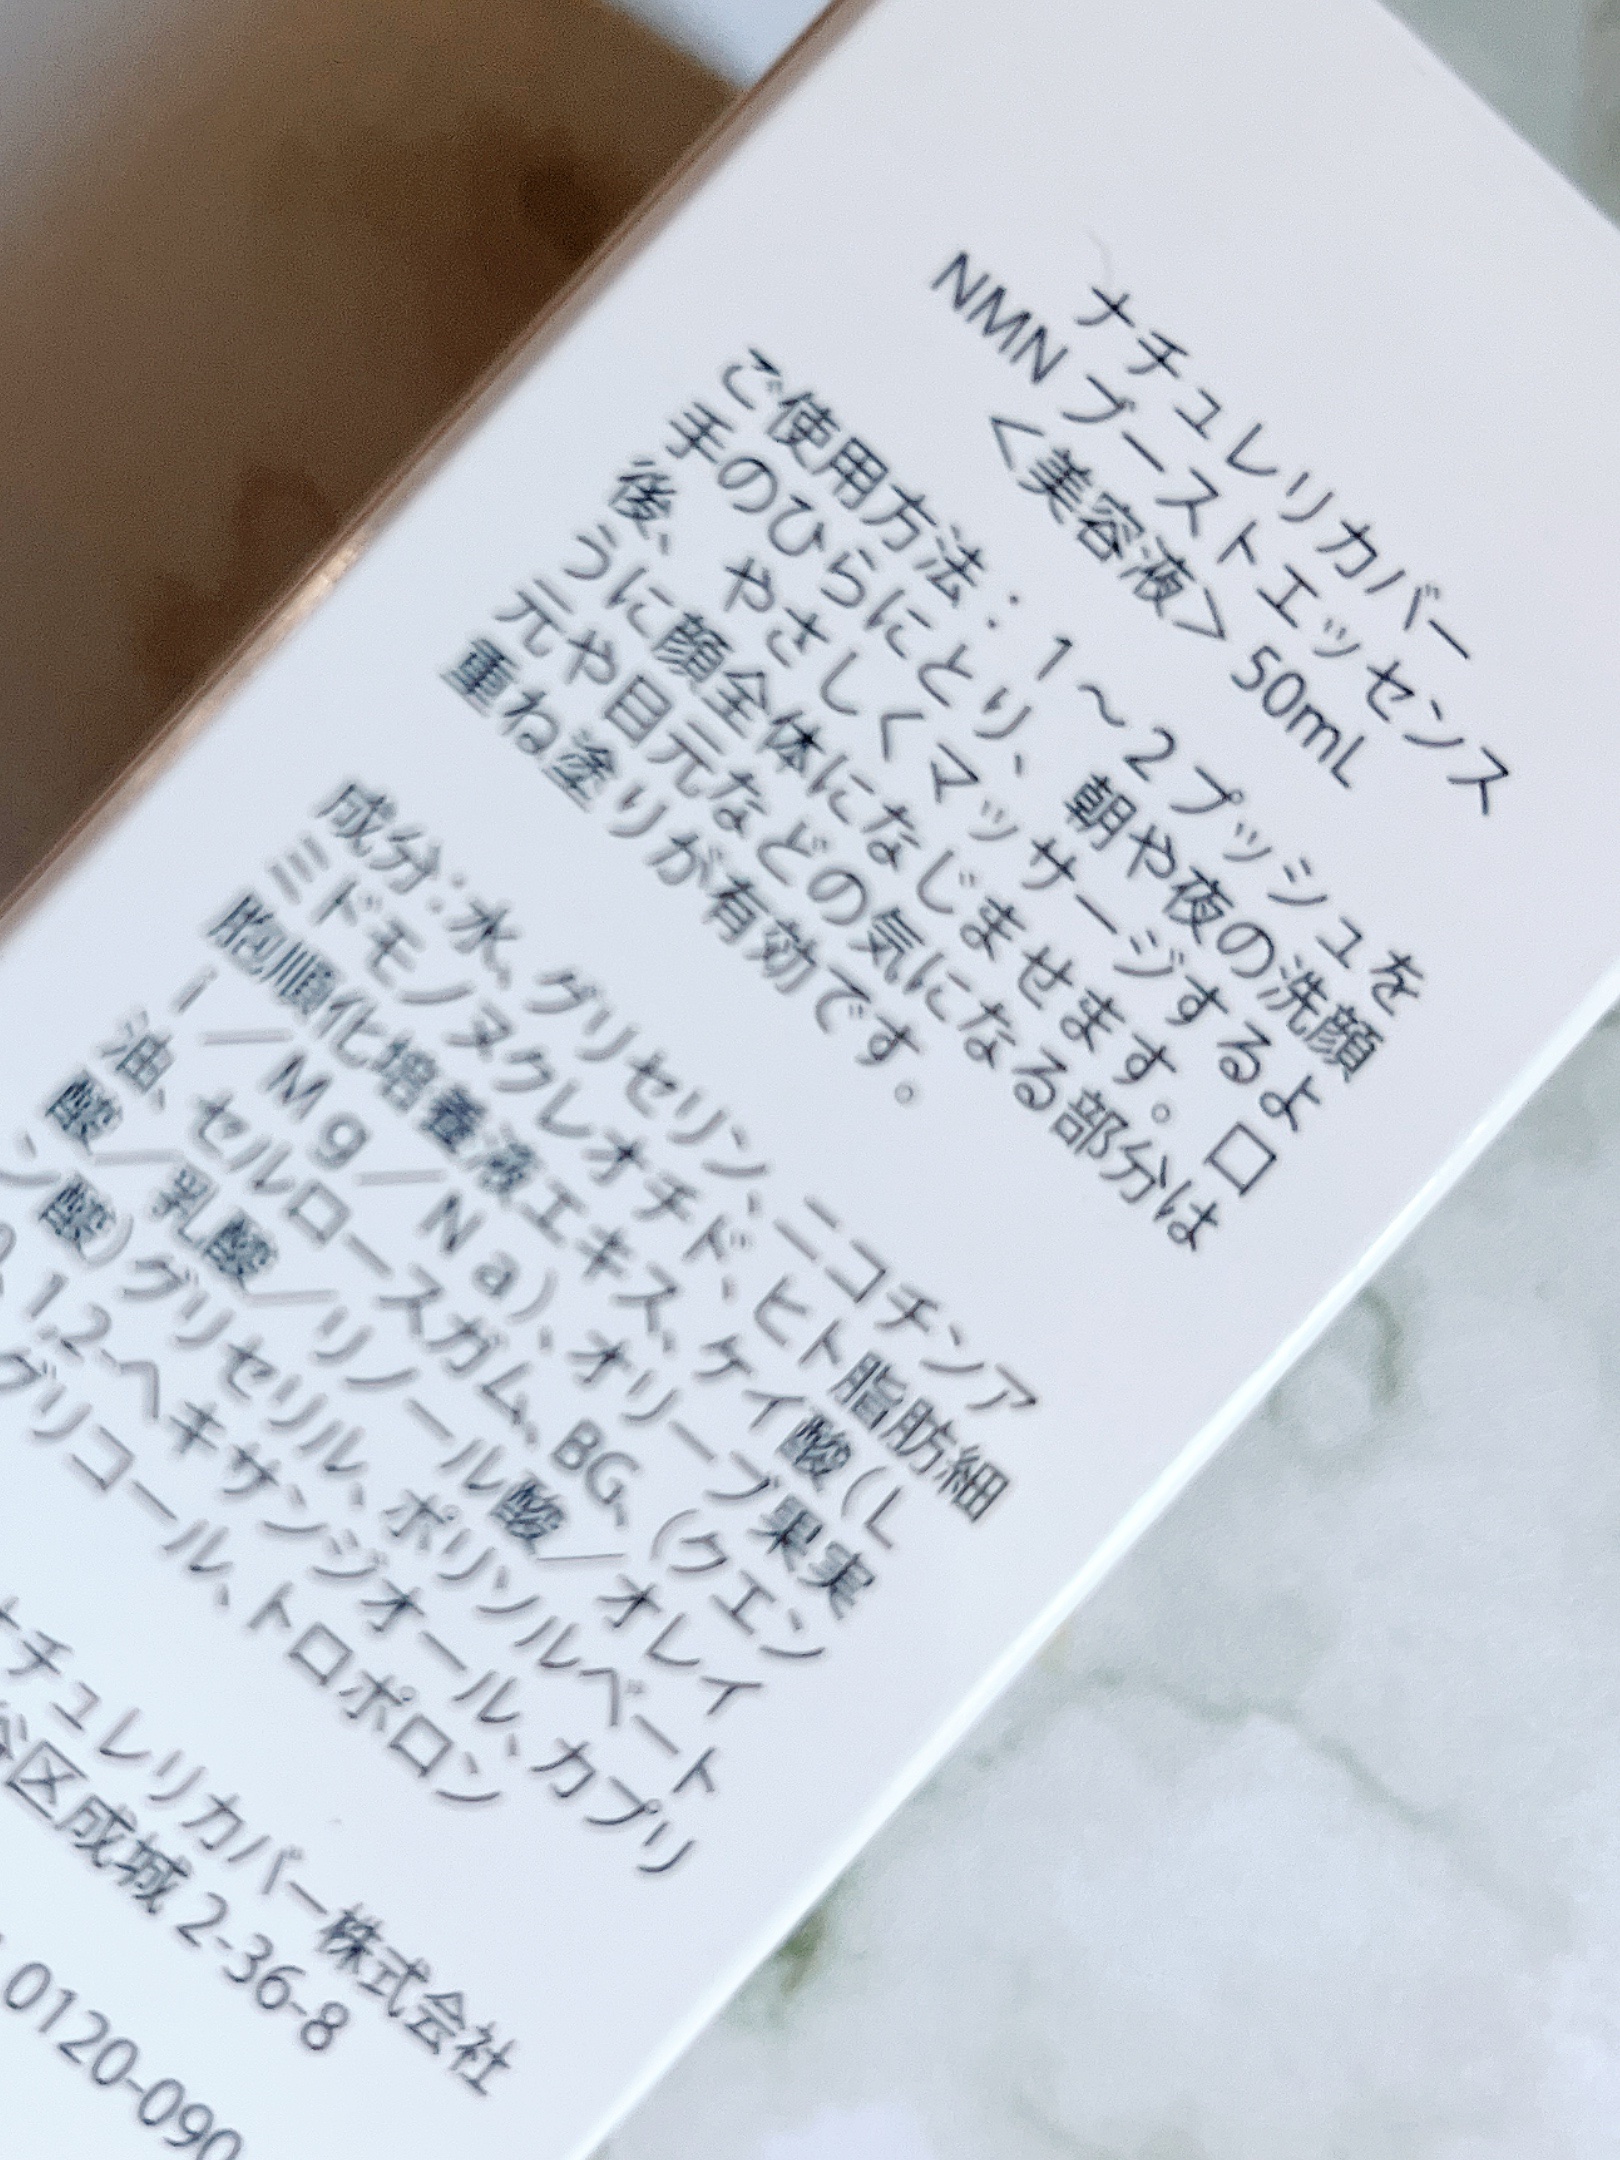 ナチュレリカバー
NMN ブーストエッセンス
＜美容液＞ 50mL
ご使用方法：1～2プッシュを
手のひらにとり、朝や夜の洗顔
後、やさしくマッサージするよ
うに顔全体になじませます。口
元や目元などの気になる部分は
重ね塗りが有効です。
成分：水、グリセリン、ニコチンア
ミドモノヌクレオチド、ヒト脂肪細
胞順化培養液エキス、ケイ酸（L
i／Mg／Na）、オリーブ果実
油、セルロースガム、BG、（クエン
酸／乳酸／リノール酸／オレイ
ン酸）グリセリル、ポリソルベート
1,2-ヘキサンジオール、カプリ
グリコール、トロポロン
ナチュレリカバー株式会社
谷区成城 2-36-8
0120-090